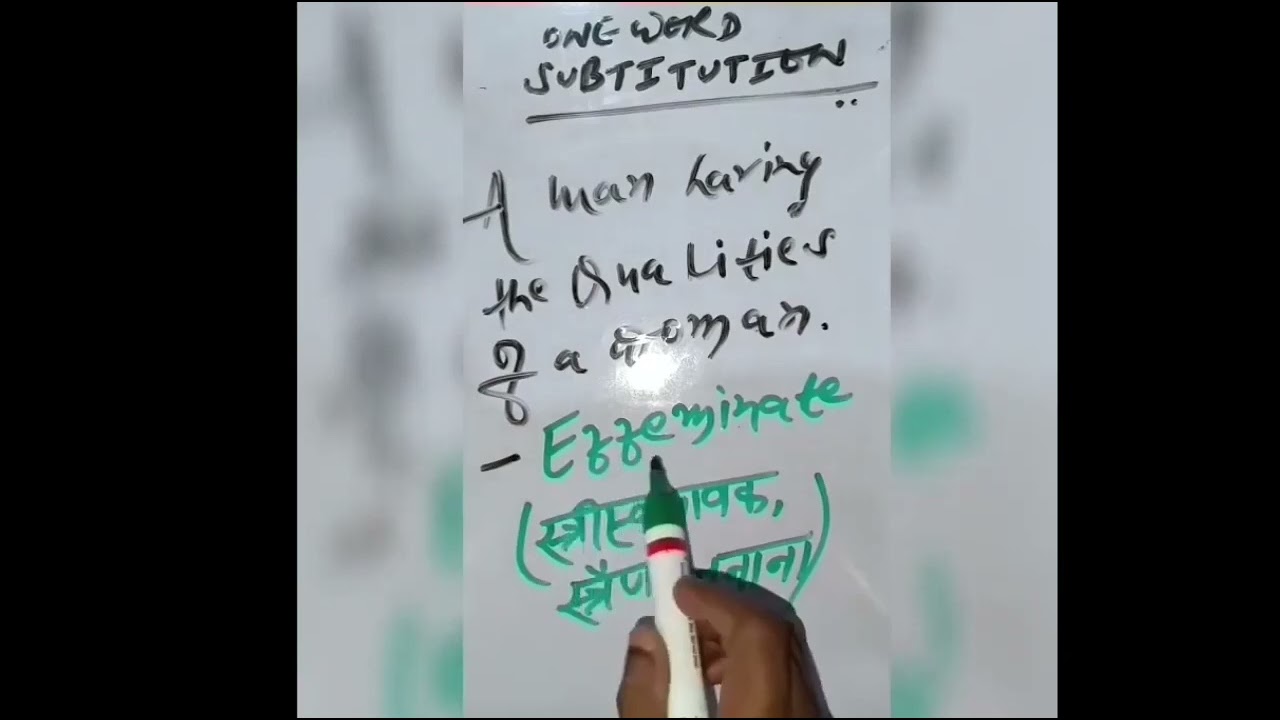 ONE WORD
SUBTITUTION
A man having
the Qualities
of a woman.
- Effeminate
(
स्त्रैण
)